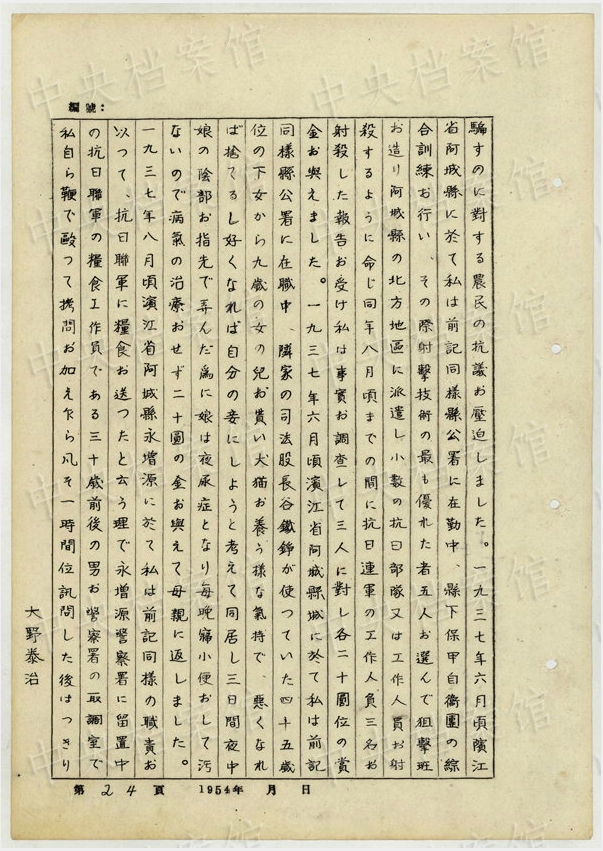 編號：
騙すのに對する農民の抗議お壓迫しました。一九三七年六月頃濱江
省阿城縣に於て私は前記同樣縣公署に在勤中、縣下保甲自衛團の綜
合訓練お行い、その際射擊技術の最も優れた者五人お選んで狙擊班
お造り阿城縣の北方地區に派遣し小數の抗日部隊又は工作人員お射
殺するように命じ同年八月頃までの間に抗日連軍の工作人負三名お
射殺した報告お受け私は事實お調查して三人に對し各二十圓位の賞
金お與えました。一九三七年六月頃濱江省阿城縣城に於て私は前記
同樣縣公署に在職中、隣家の司法股長谷鐵錚が使つていた四十五歲
位の下女から九歲の女の兒お貰い犬猫お養う樣な氣持で、悪くなれ
ば捨てるし好くなれば自分の妾にしようと考えて同居し三日間夜中
娘の陰部お指先で弄んだ為に娘は夜尿症となり每晚寢小便おして汚
ないので病氣の治療おせず二十圓の金お與えて母親に返しました。
一九三七年八月頃濱江省阿城縣永增源に於て私は前記同樣の職責お
以つて、抗日聯軍に糧食お送つたと云う理で永增源警察署に留置中
の抗日聯軍の糧食工作員である三十歲前後の男お警察署の取調室で
私自ら鞭で毆つて拷問お加え乍ら凡そ一時間位訊問した後はつきり
大野泰治
第24頁 1954年 月 日
中央档案馆